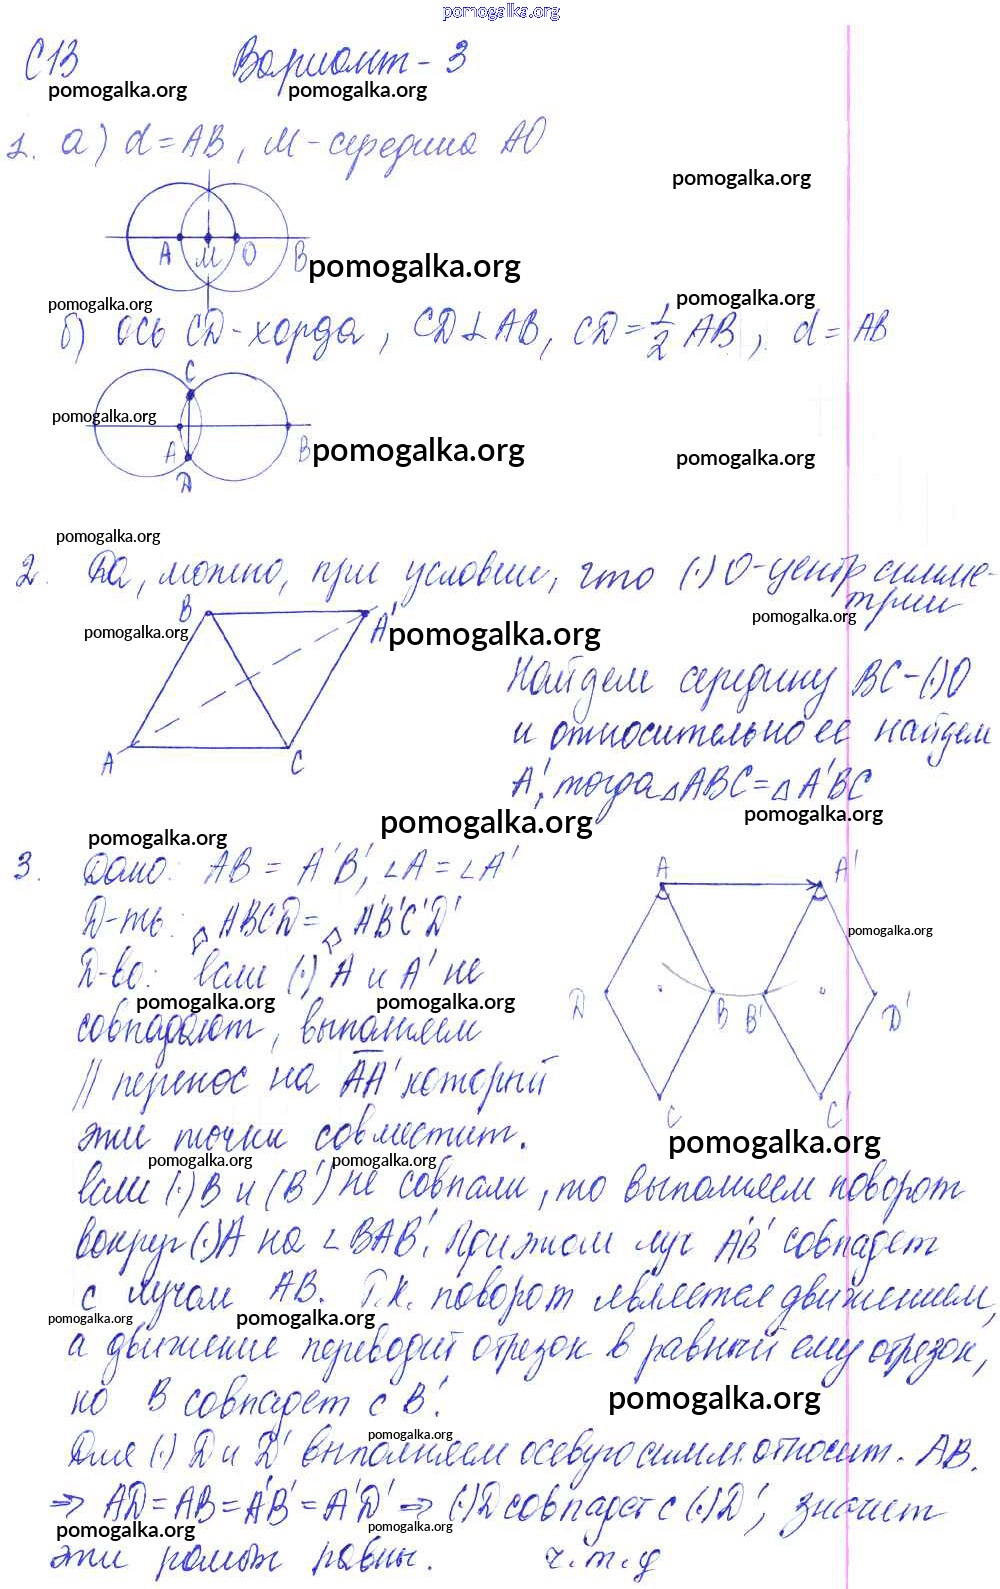 pomogalka.org
С13 Вариант-3
pomogalka.org pomogalka.org
1. а) d=AB, М-середина АО
pomogalka.org
A М O B pomogalka.org
pomogalka.org pomogalka.org
б) ось CD-хорда, CD⊥AB, CD=1/2 AB, d=AB
C
pomogalka.org
A B pomogalka.org pomogalka.org
D
pomogalka.org
2. Да, можно, при условии, что (·) O-центр симме-
трии
B A'
pomogalka.org pomogalka.org pomogalka.org
Найдем середину BC-(·)O
и относительно ее найдем
A C
A', тогда △ABC=△A'BC
pomogalka.org pomogalka.org pomogalka.org
3. Дано: AB = A'B', ∠A = ∠A'
A A'
Д-ть: ABCD= A'B'C'D'
pomogalka.org
Д-во: Если (·) A и A' не
pomogalka.org pomogalka.org
D B B' D'
совпадают, выполняем
// перенос на AA' который
C C'
эти точки совместит.
pomogalka.org
pomogalka.org pomogalka.org
Если (·) B и (B') не совпали, то выполняем поворот
вокруг (·)A на ∠BAB'. При этом луч A'B' совпадет
с лучом AB. Т.к. поворот является движением,
pomogalka.org pomogalka.org
а движение переводит отрезок в равный ему отрезок,
но B совпадет с B'.
pomogalka.org
pomogalka.org
Для (·) D и D' выполняем осевую симм. относит. AB.
⇒ AD=AB=A'B'=A'D' ⇒ (·)D совпадет с (·)D', значит
pomogalka.org pomogalka.org
эти ромбы равны. ч.т.д